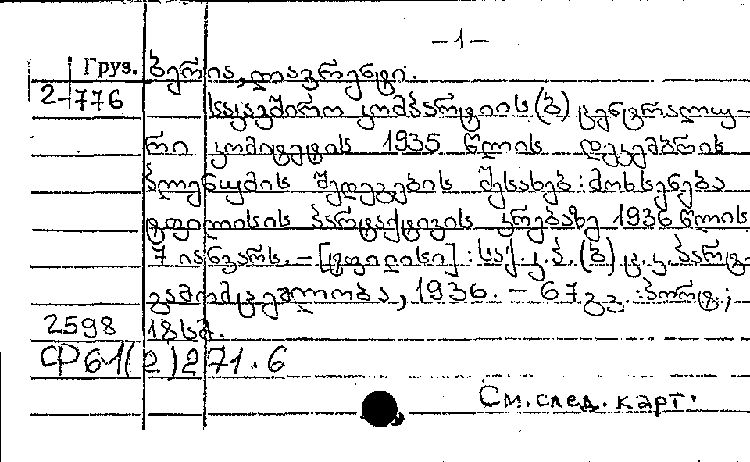 -1-
Груз. ბერია, ლავრენტი.
2-776
საკავშირო კომპარტიის (ბ) ცენტრალუ-
რი კომიტეტის 1935 წლის დეკემბრის
პლენუმის შედეგების შესახებ: მოხსენება
ტფილისის პარტაქტივის კრებაზე 1936 წლის
7 იანვარს. - [ტფილისი] : საქ. კ. პ. (ბ) ც. კ. პარტ-
გამომცემლობა, 1936. - 67 გვ. : პორტ.;
2598 18 სმ.
Ф61(2)271.6
См. след. карт.